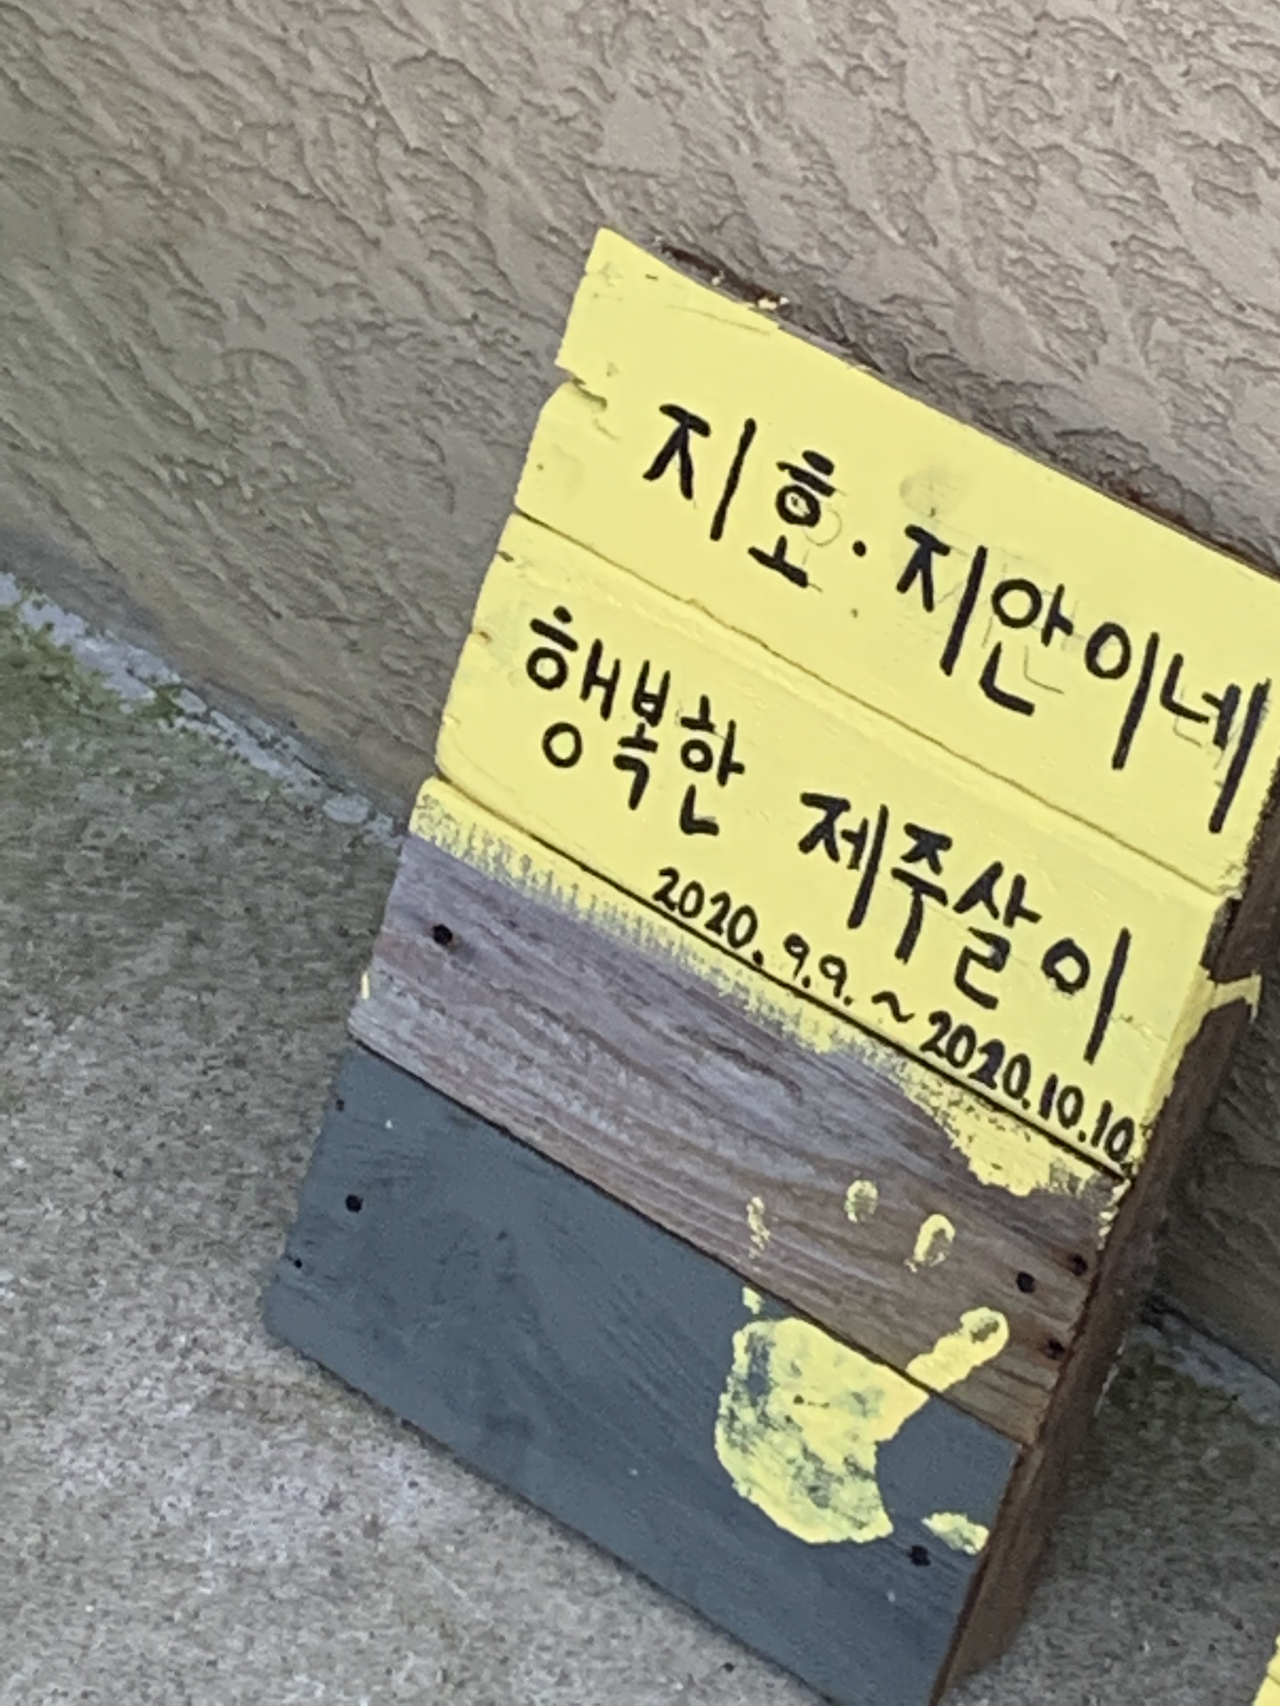 지호·지안이네
행복한 제주살이
2020.9.9.~2020.10.10